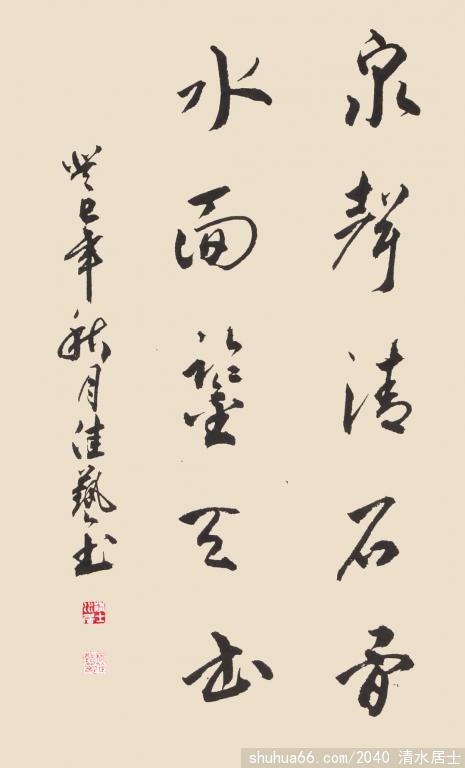 泉聲清石骨
水面鑒天
癸巳年秋月佳藝书
shuhua66.com/2040 清水居士